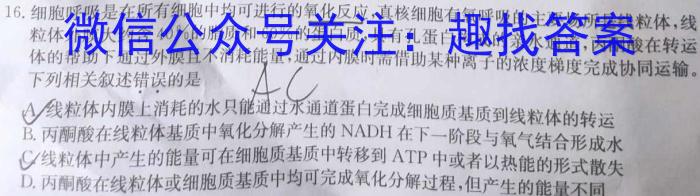 16. 细胞呼吸是在所有细胞中均可进行的氧化反应,真核细胞有氧呼吸的主要场所是线粒体,线
粒体
微信公众号关注:趣找答案
在转运
体的帮助下通过外膜且不消耗能量,通过内膜时需借助某种离子的浓度梯度完成协同运输。
下列相关叙述错误的是
AC
A. 线粒体内膜上消耗的水只能通过水通道蛋白完成细胞质基质到线粒体的转运
B. 丙酮酸在线粒体基质中氧化分解产生的 NADH 在下一阶段与氧气结合形成水
C. 线粒体中产生的能量可在细胞质基质中转移到 ATP 中或者以热能的形式散失
D. 丙酮酸在线粒体或细胞质基质中均可完成氧化分解过程,但产生的能量不同